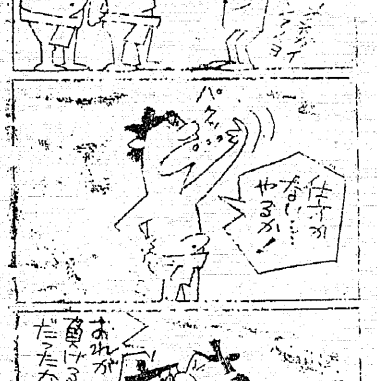 パクッ
仕方が
ない……
やるか!
おれが
負ける
だった